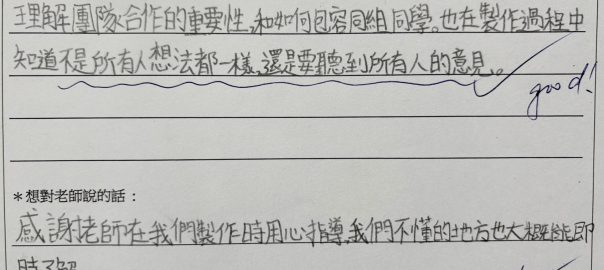 理解團隊合作的重要性,和如何包容同組同學。也在製作過程中
知道不是所有人想法都一樣,還是要聽到所有人的意見。
good!
*想對老師說的話:
感謝老師在我們製作時用心指導,我們不懂的地方也大概能即
時了解